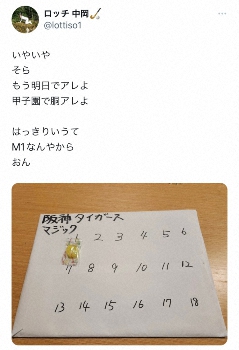 ロッチ 中岡🏑
@lottiso1
いやいや
そら
もう明日でアレよ
甲子園で胴アレよ
はっきりいうて
M1なんやから
おん
阪神タイガース
マジック
2 3 4 5 6
7 8 9 10 11 12
13 14 15 16 17 18